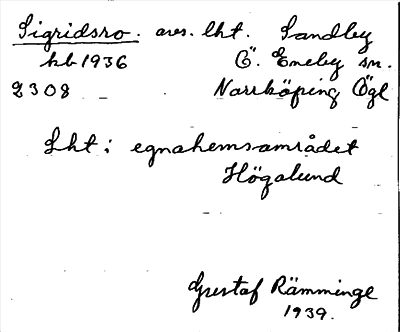 Sigridsro. avs. lht. Sandby
hb 1936 Ö. Eneby sn.
2308 Norrköping Ögl
Lht i egnahemsområdet
Högalund
Gustaf Rämminge
1939.